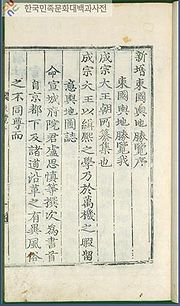 한국민족문화대백과사전
新增東國輿地勝覽序
東國輿地勝覽我
成宗大王朝所纂集也
成宗大王以緝熙之學乃於萬機之暇留
意輿地圖誌
命宣城府院君盧思愼等撰次為書首
自京都下及諸道沿革之有異風俗
之不同尊而